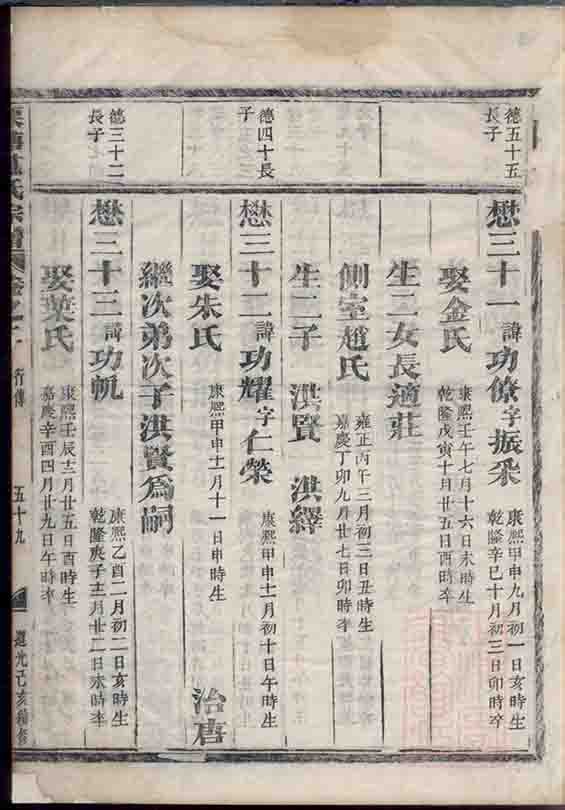 德五十五
長子
懋三十一 諱 功僚 字 振采 康熙甲申九月初一日亥時生
乾隆辛巳十月初三日卯時卒
娶金氏 康熙壬午七月十六日未時生
乾隆戊寅十月廿五日酉時卒
生二女長適莊
側室趙氏 雍正丙午三月初三日丑時生
嘉慶丁卯九月廿七日卯時卒
生二子 洪賢 洪繹
德四十長
子
懋三十二 諱 功耀 字 仁榮 康熙甲申十一月初十日午時生
娶朱氏 康熙甲申十一月十一日申時生
治唐
繼次弟次子洪賢為嗣
德三十二
長子
懋三十三 諱 功帆 康熙乙酉二月初二日亥時生
乾隆庚子十二月廿二日未時卒
娶葉氏 康熙壬辰十二月廿五日酉時生
嘉慶辛酉四月廿九日午時卒
氏宗譜 行傳 五十九 道光己亥續修